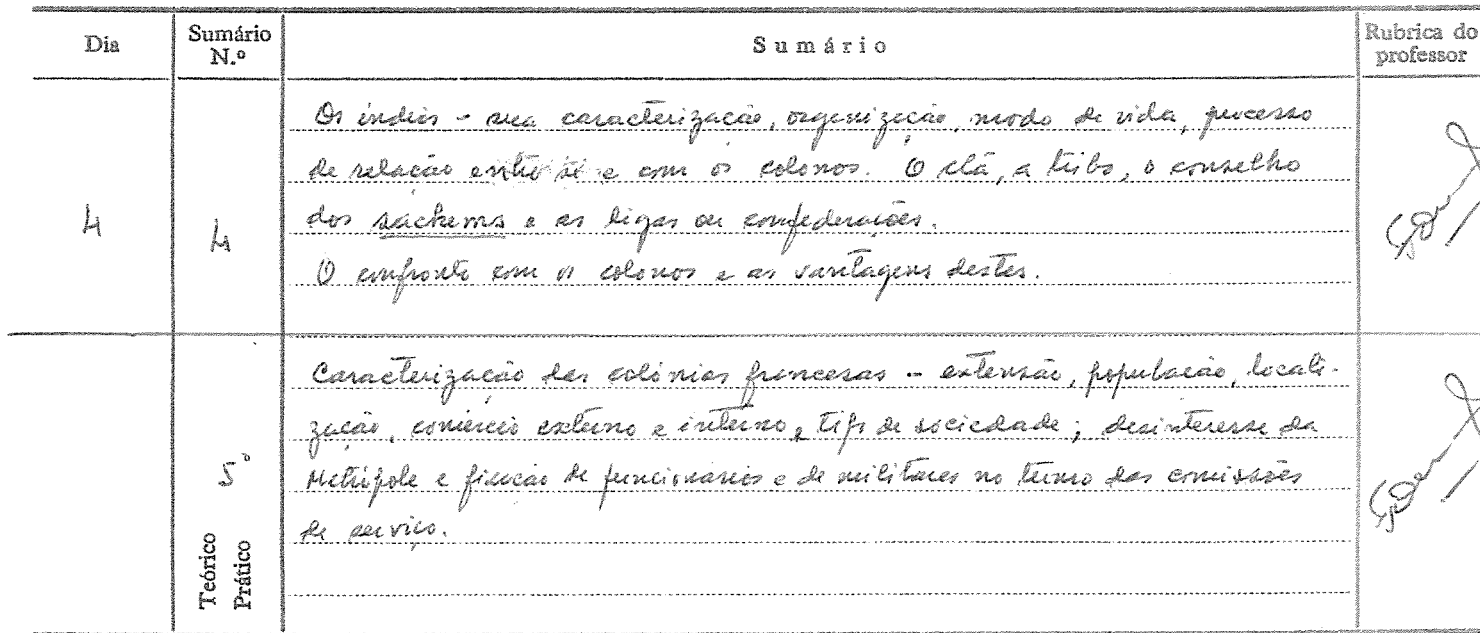 Dia
Sumário N.º
Sumário
Rubrica do professor
4
4
Os índios - sua caracterização, organização, modo de vida, processo
de relação entre si e com os colonos. O clã, a tribo, o conselho
dos sachems e as ligas ou confederações.
O confronto com os colonos e as vantagens destes.
5º
Teórico
Prático
Caracterização das colónias francesas - extensão, população, locali-
zação, comércio externo e interno, tipo de sociedade; desinteresse da
Metrópole e fixação de funcionários e de militares no termo das comissões
de serviço.